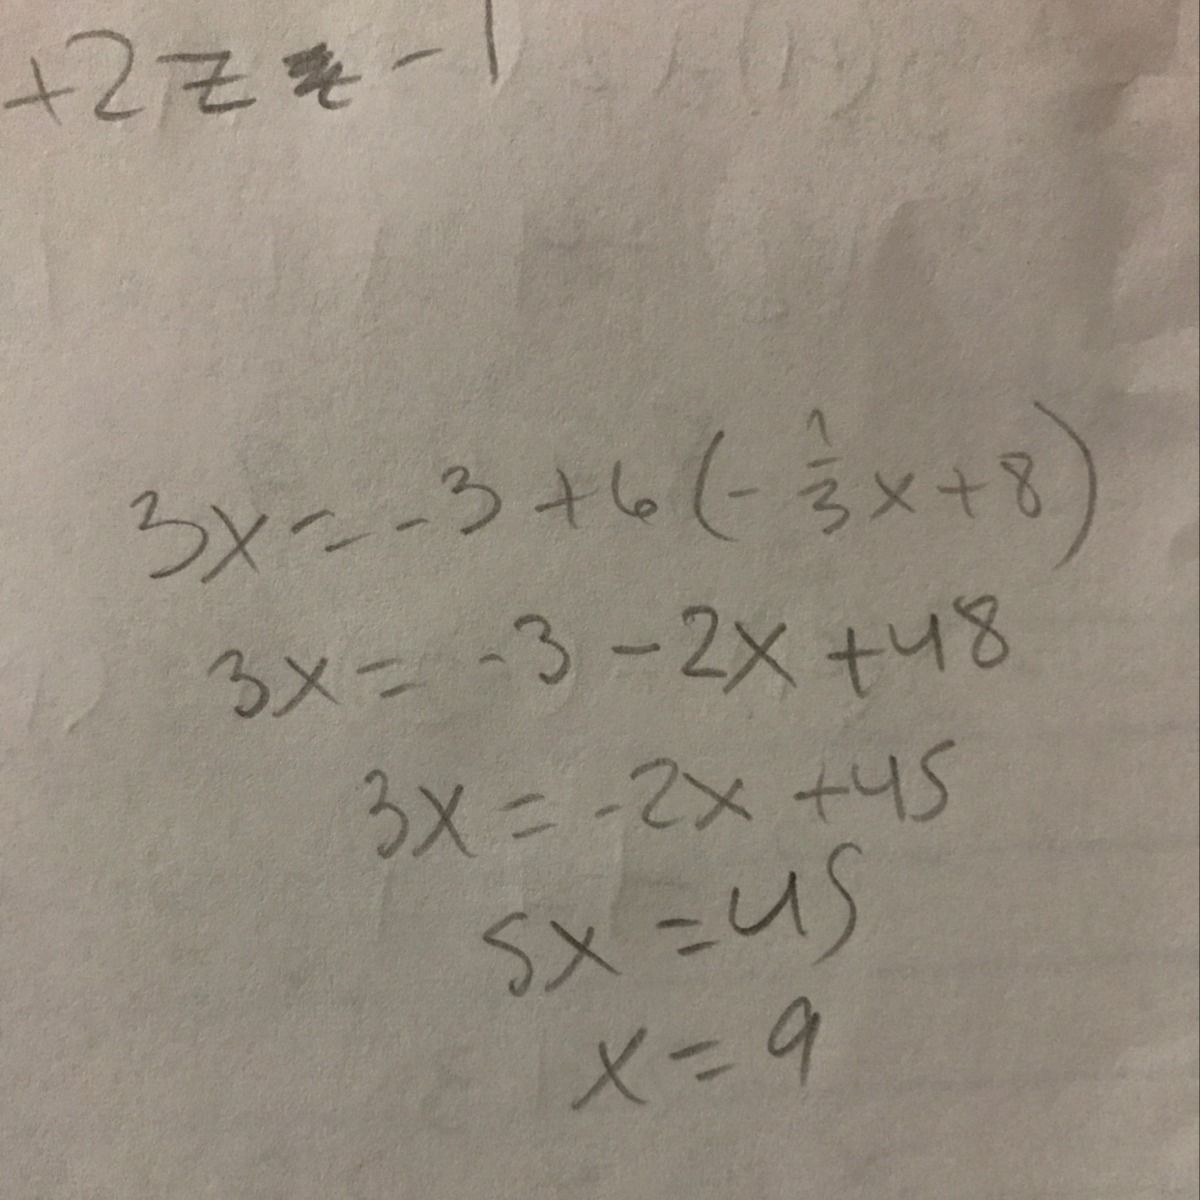 +2z - 1
3x = -3 + 6(-1/3x + 8)
3x = -3 - 2x + 48
3x = -2x + 45
5x = 45
x = 9